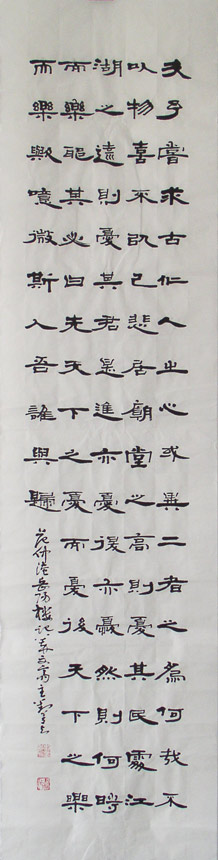 夫予嘗求古仁人之心或異二者之為何哉不
以物喜不以己悲居廟堂之高則憂其民處江
湖之遠則憂其君是進亦憂退亦憂然則何時
而樂耶其必曰先天下之憂而憂後天下之樂
而樂歟噫微斯人吾誰與歸
范仲淹岳陽樓記